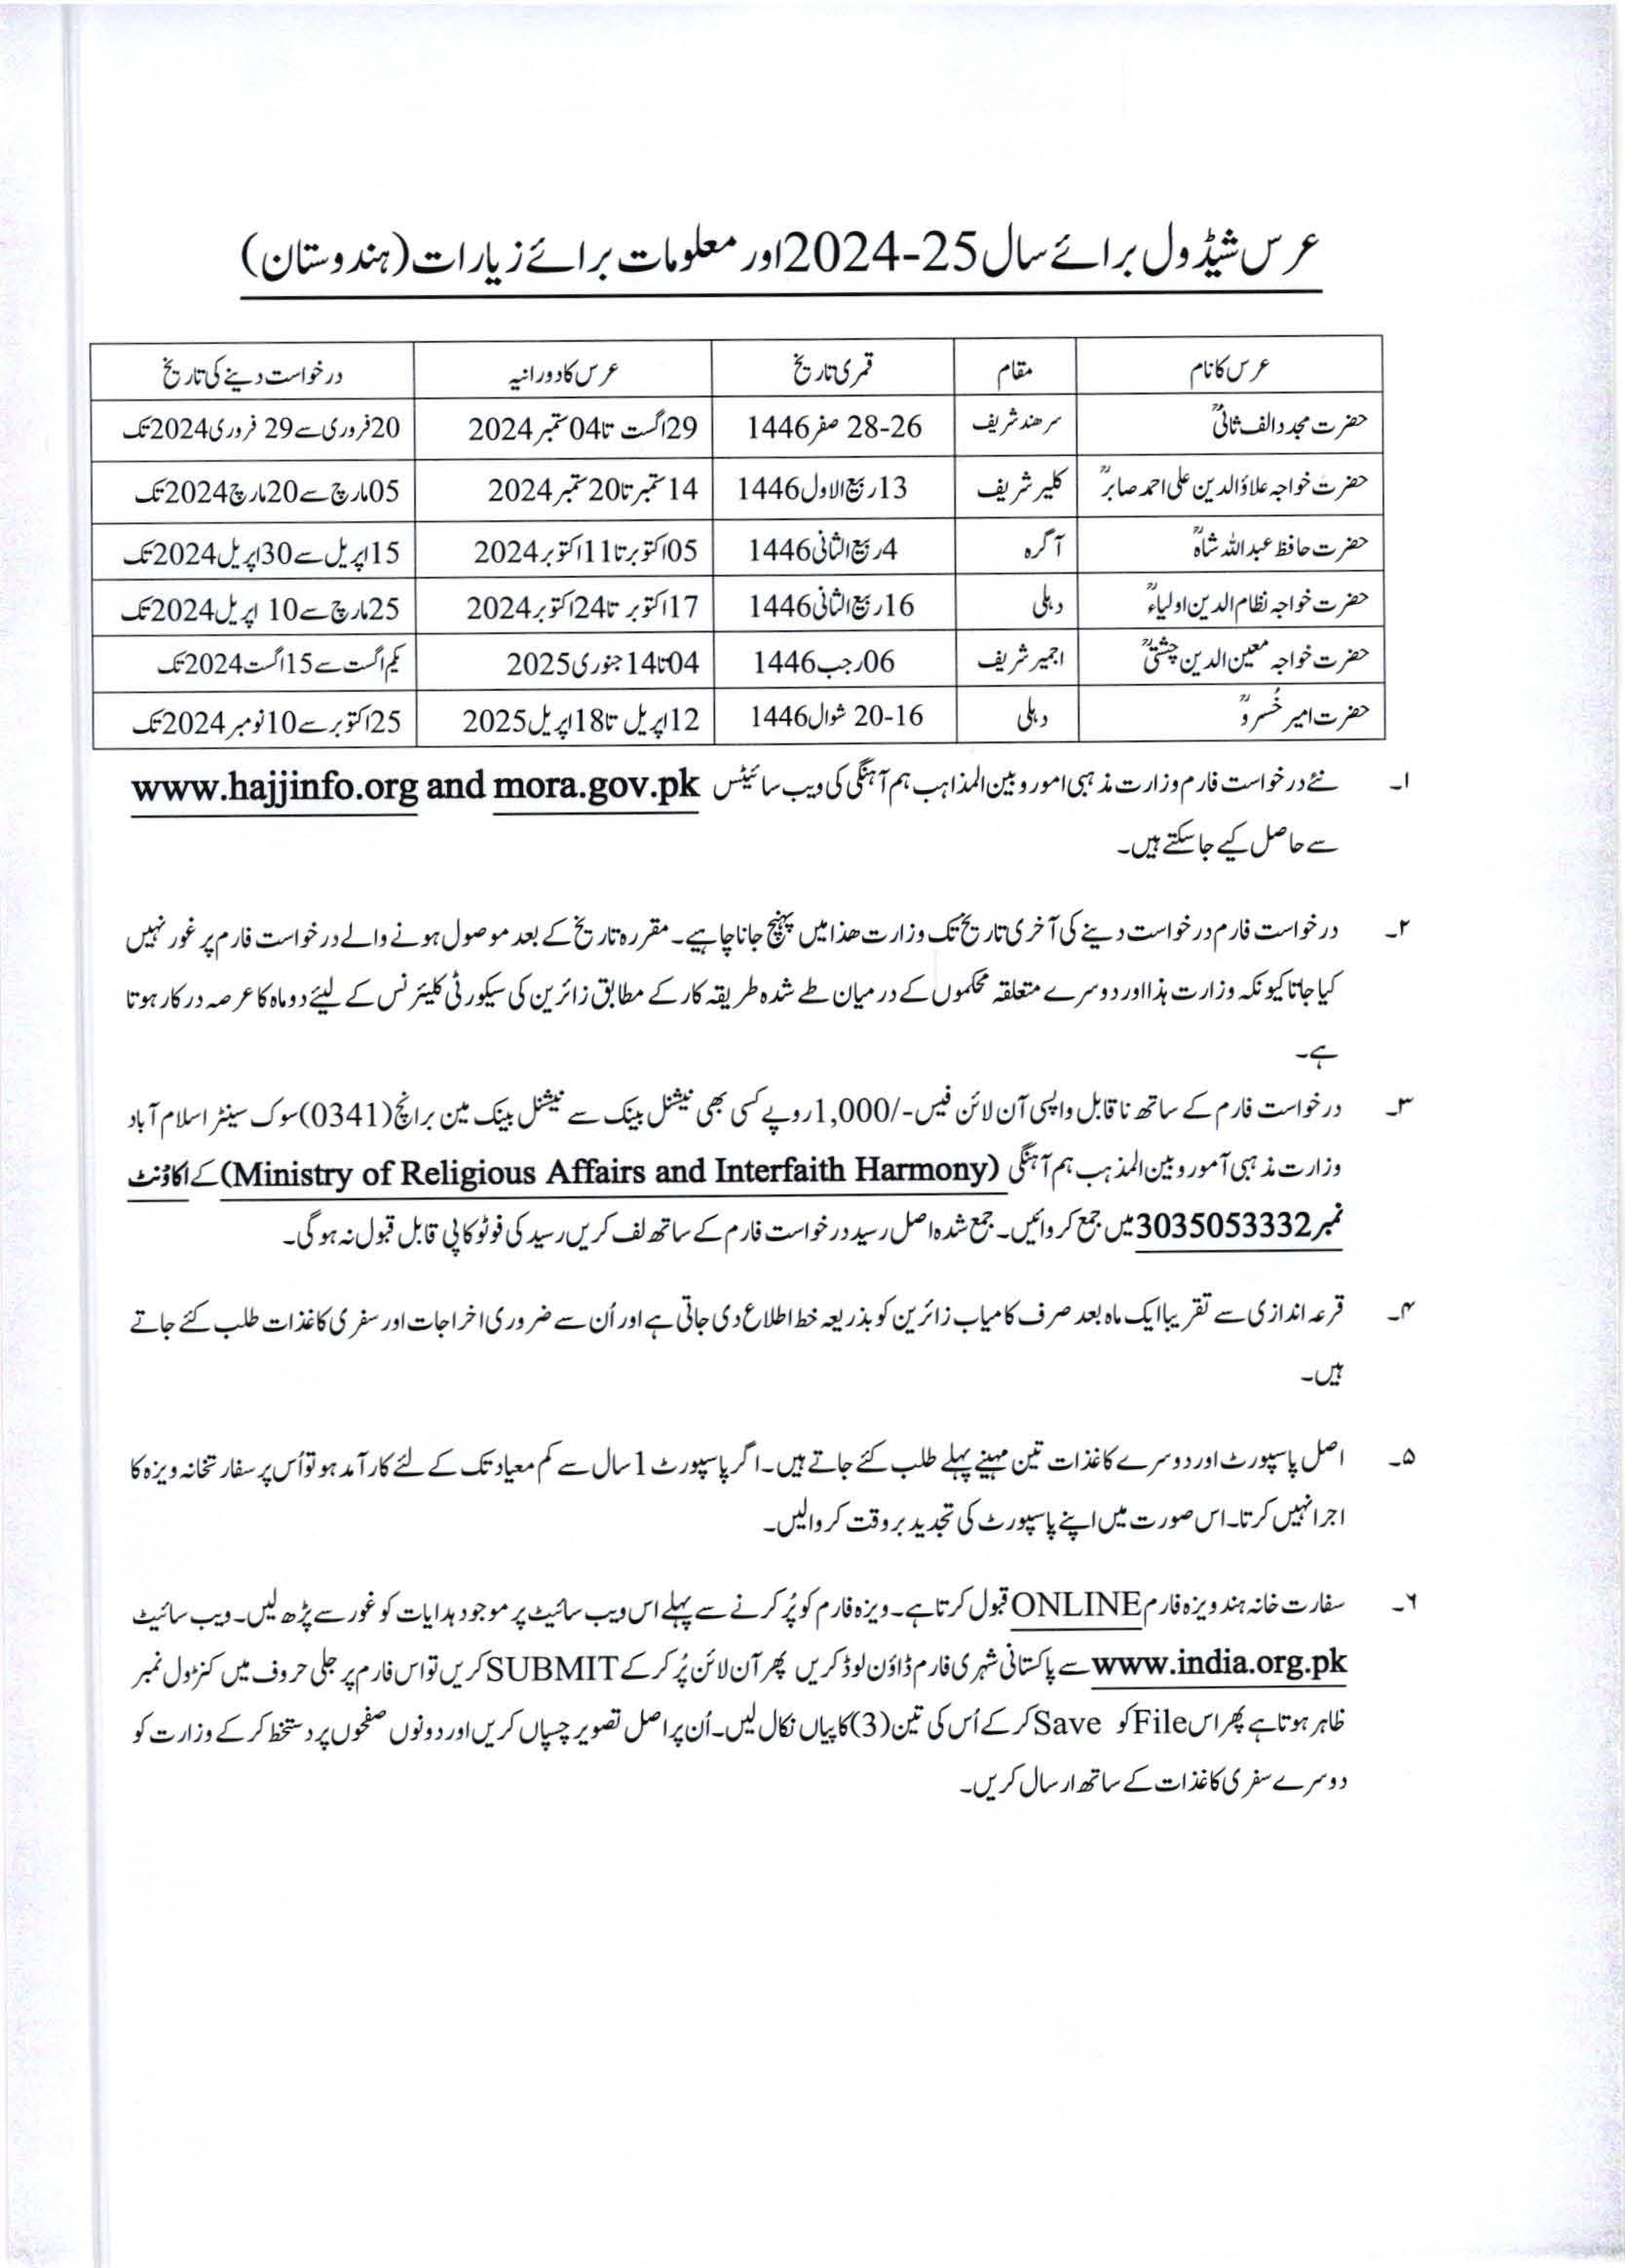 عرس شیڈول برائے سال 25-2024 اور معلومات برائے زیارات (ہندوستان)
عرس کا نام مقام قمری تاریخ عرس کا دورانیہ درخواست دینے کی تاریخ
حضرت مجدد الف ثانیؒ سرھند شریف 26-28 صفر 1446 29 اگست تا 04 ستمبر 2024 20 فروری سے 29 فروری 2024 تک
حضرت خواجہ علاؤالدین علی احمد صابرؒ کلیر شریف 13 ربیع الاول 1446 14 ستمبر تا 20 ستمبر 2024 05 مارچ سے 20 مارچ 2024 تک
حضرت حافظ عبداللہ شاہؒ آگرہ 4 ربیع الثانی 1446 05 اکتوبر تا 11 اکتوبر 2024 15 اپریل سے 30 اپریل 2024 تک
حضرت خواجہ نظام الدین اولیاءؒ دہلی 16 ربیع الثانی 1446 17 اکتوبر تا 24 اکتوبر 2024 25 مارچ سے 10 اپریل 2024 تک
حضرت خواجہ معین الدین چشتیؒ اجمیر شریف 06 رجب 1446 04 تا 14 جنوری 2025 یکم اگست سے 15 اگست 2024 تک
حضرت امیر خُسروؒ دہلی 16-20 شوال 1446 12 اپریل تا 18 اپریل 2025 25 اکتوبر سے 10 نومبر 2024 تک
۱۔ نئے درخواست فارم وزارت مذہبی امور و بین المذاہب ہم آہنگی کی ویب سائیٹس www.hajjinfo.org and mora.gov.pk
سے حاصل کیے جا سکتے ہیں۔
۲۔ درخواست فارم درخواست دینے کی آخری تاریخ تک وزارت ھذا میں پہنچ جانا چاہیے۔ مقررہ تاریخ کے بعد موصول ہونے والے درخواست فارم پر غور نہیں
کیا جاتا کیونکہ وزارت ہذا اور دوسرے متعلقہ محکموں کے درمیان طے شدہ طریقہ کار کے مطابق زائرین کی سیکورٹی کلیئرنس کے لیئے دو ماہ کا عرصہ درکار ہوتا
ہے۔
۳۔ درخواست فارم کے ساتھ ناقابل واپسی آن لائن فیس -/1,000 روپے کسی بھی نیشنل بینک سے نیشنل بینک مین برانچ (0341) سوک سینٹر اسلام آباد
وزارت مذہبی آمور و بین المذہب ہم آہنگی (Ministry of Religious Affairs and Interfaith Harmony) کے اکاؤنٹ
نمبر 3035053332 میں جمع کروائیں۔ جمع شدہ اصل رسید درخواست فارم کے ساتھ لف کریں رسید کی فوٹو کاپی قابل قبول نہ ہو گی۔
۴۔ قرعہ اندازی سے تقریبا ایک ماہ بعد صرف کامیاب زائرین کو بذریعہ خط اطلاع دی جاتی ہے اور اُن سے ضروری اخراجات اور سفری کاغذات طلب کئے جاتے
ہیں۔
۵۔ اصل پاسپورٹ اور دوسرے کاغذات تین مہینے پہلے طلب کئے جاتے ہیں۔ اگر پاسپورٹ 1 سال سے کم معیاد تک کے لئے کارآمد ہو تو اُس پر سفارتخانہ ویزہ کا
اجرا نہیں کرتا۔ اس صورت میں اپنے پاسپورٹ کی تجدید بروقت کروا لیں۔
۶۔ سفارت خانہ ہند ویزہ فارم ONLINE قبول کرتا ہے۔ ویزہ فارم کو پُر کرنے سے پہلے اس ویب سائیٹ پر موجود ہدایات کو غور سے پڑھ لیں۔ ویب سائیٹ
www.india.org.pk سے پاکستانی شہری فارم ڈاؤن لوڈ کریں پھر آن لائن پُر کر کے SUBMIT کریں تو اس فارم پر جلی حروف میں کنٹرول نمبر
ظاہر ہوتا ہے پھر اس File کو Save کر کے اُس کی تین (3) کاپیاں نکال لیں۔ اُن پر اصل تصویر چسپاں کریں اور دونوں صفحوں پر دستخط کر کے وزارت کو
دوسرے سفری کاغذات کے ساتھ ارسال کریں۔